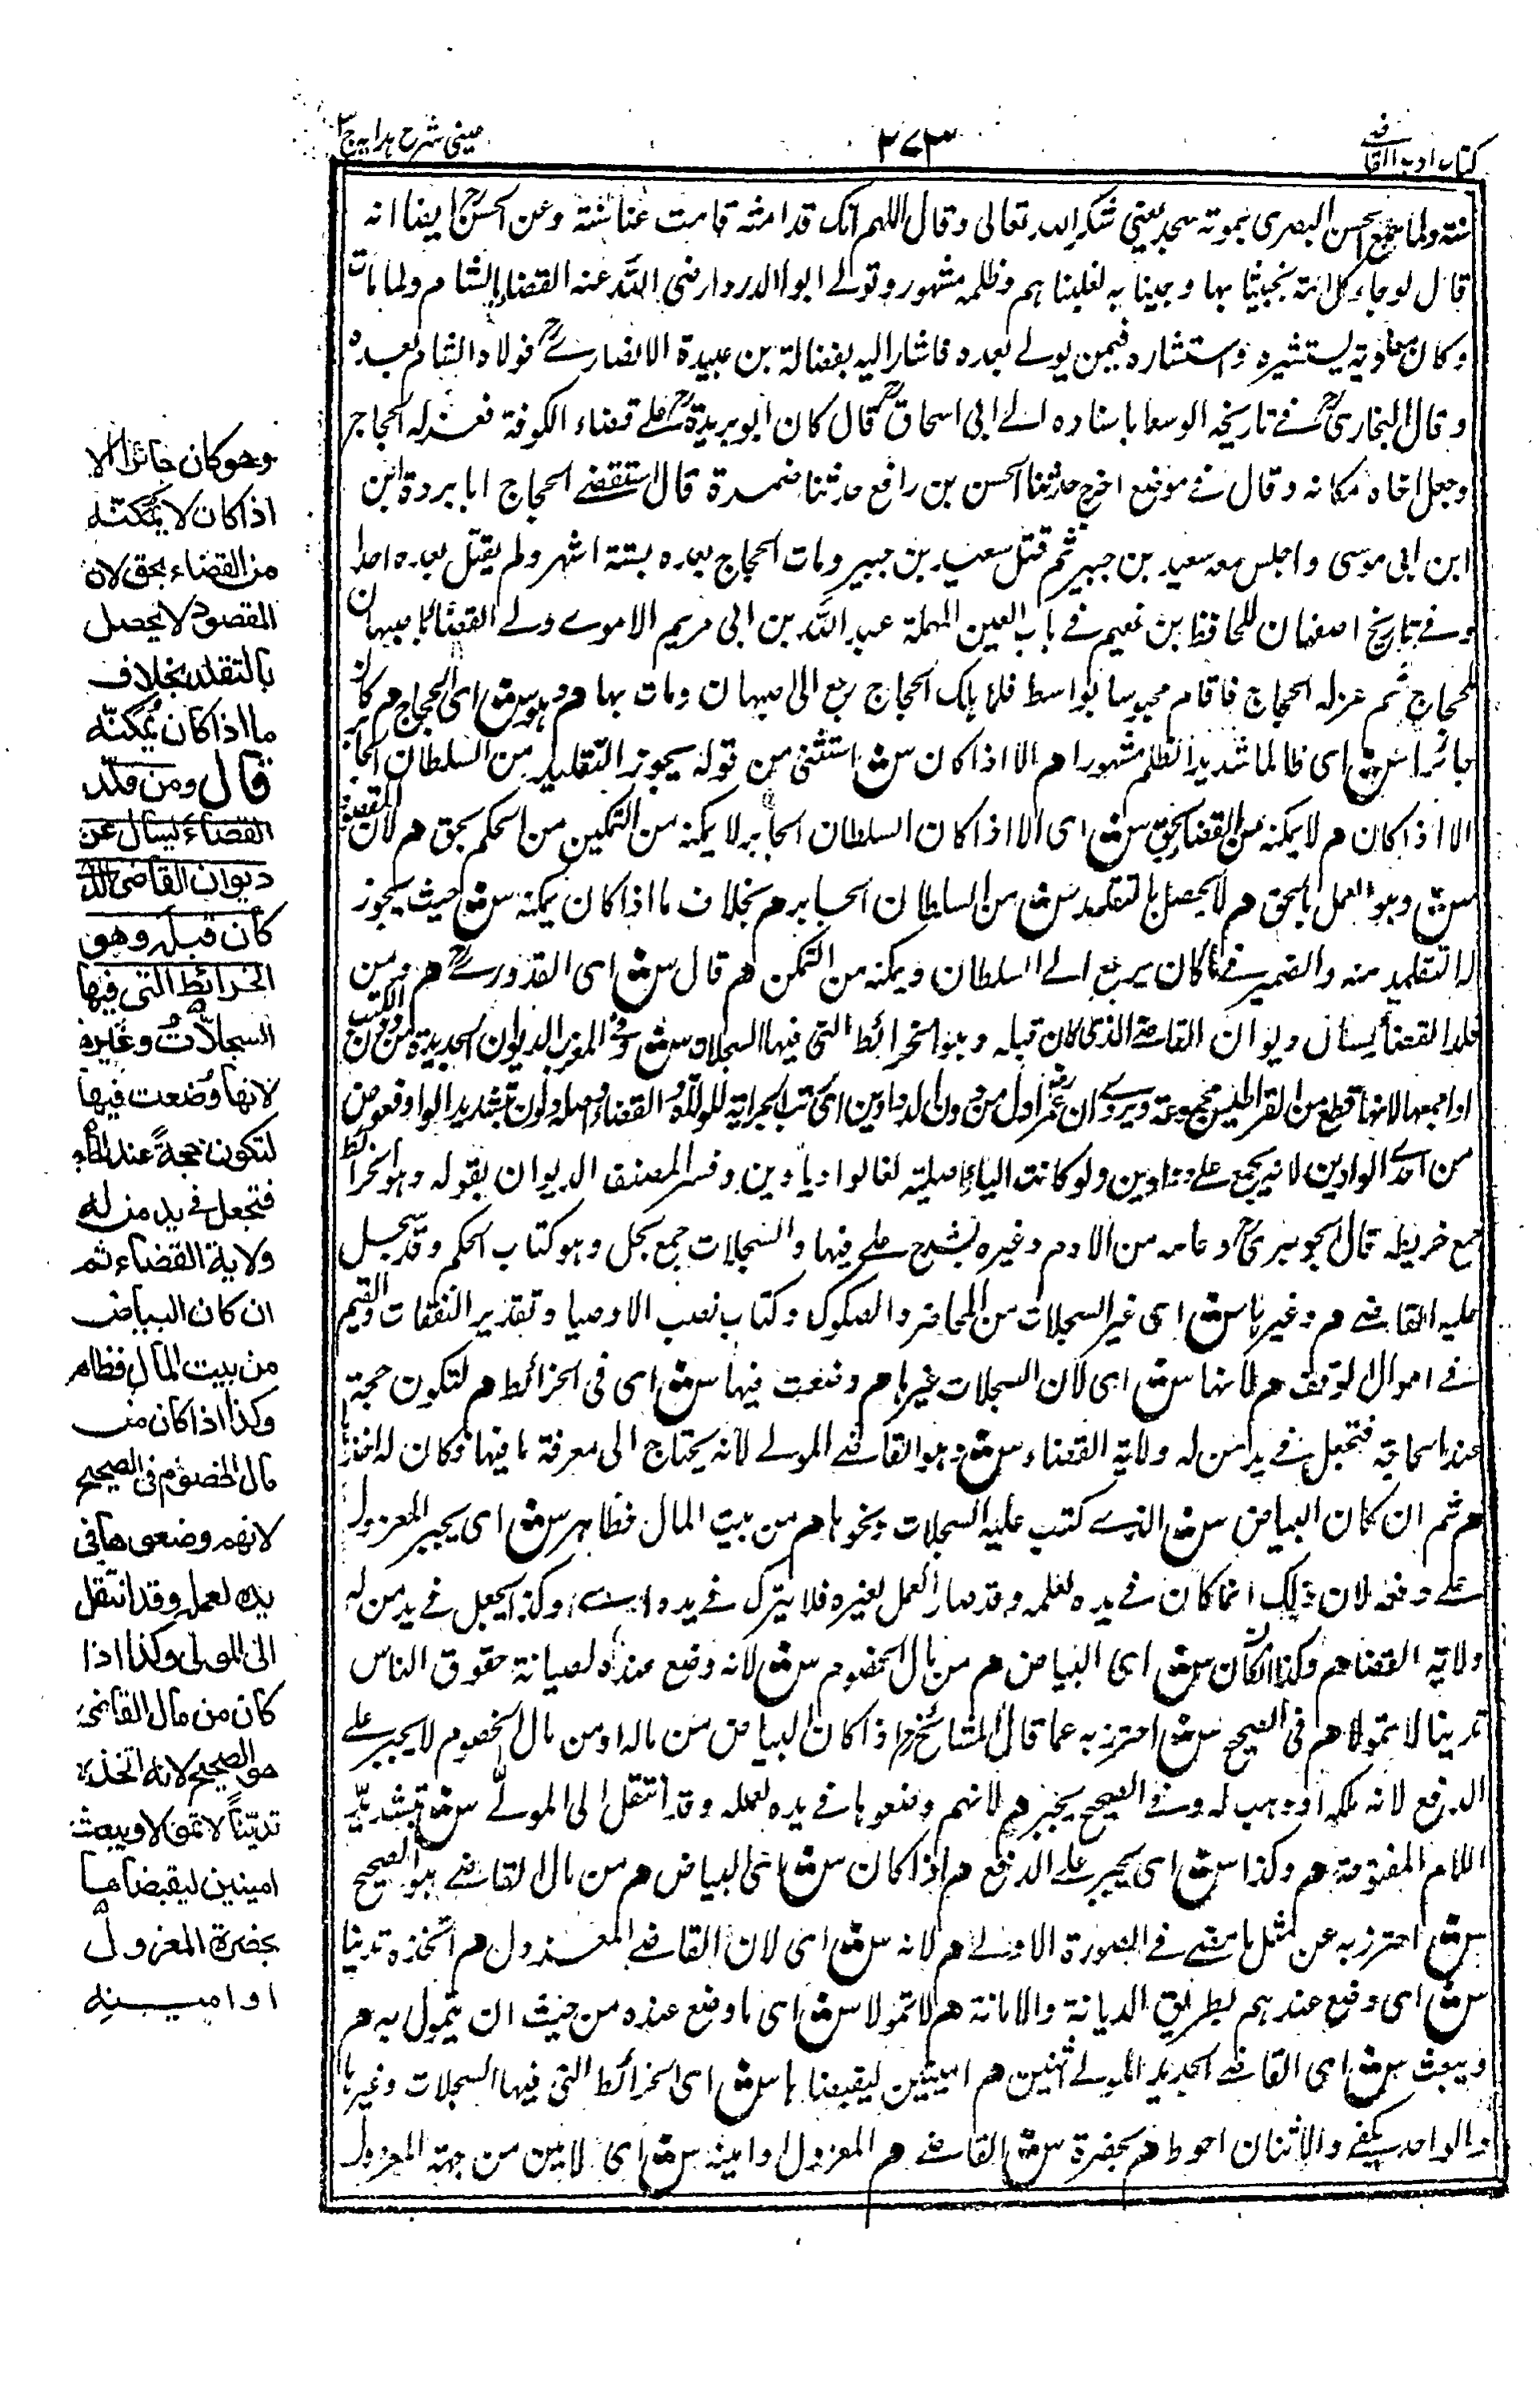 كتاب ادب القاضي
٢٧٣
عيني شرح هدايه ج٣
سنته ولما سمع الحسن البصري بموته سجد يعني شكرا لله تعالى وقال اللهم انك قد امته فامت عنا سنته وعن الحسن ايضا انه
قال لو جاء كل امة بخبيثا بها وجينا به لغلبناهم وظلمه مشهور وتولى ابو الدرداء رضي الله عنه القضاء بالشام ولما مات
وكان معاوية يستشيره واستشاره فيمن يولى بعده فاشار اليه بفضالة بن عبيدة الانصاري فولاه الشام بعده
وقال البخاري في تاريخه الاوسط باسناده الى ابي اسحاق قال كان ابو بريدة على قضاء الكوفة فعزله الحجاج
وجعل اخاه مكانه وقال في موضع اخر حدثنا الحسن بن رافع حدثنا ضمرة قال استقضى الحجاج ابا بردة ابن
ابن ابي موسى واجلس معه سعيد بن جبير ثم قتل سعيد بن جبير ومات الحجاج بعده بستة اشهر ولم يقتل بعده احدا
وفي تاريخ اصفهان للحافظ بن نعيم في باب العين المهملة عبد الله بن ابي مريم الاموي ولي القضاء باصبهان
للحجاج ثم عزله الحجاج فاقام محبوسا بواسط فلما هلك الحجاج رجع الى اصبهان ومات بها م وهو ش اى الحجاج م كان
جائرا ش اى ظالما شديد الظلم مشهورا م الا اذا كان ش استثنى من قوله يجوز التقليد من السلطان الجائر
الا اذا كان م لا يمكنه من القضاء بحق ش اى الا اذا كان السلطان الجابر لا يمكنه من التمكين من الحكم بحق م لان المقصود
ش وهو العمل بالحق م لا يحصل بالتقليد ش من السلطان الجابر م بخلاف ما اذا كان يمكنه ش حيث يجوز
له التقليد منه والضمير في كان يرجع الى السلطان ويمكنه من التمكن م قال ش اى القدوري م ومن
قلد القضاء يسأل ديوان القاضي الذي كان قبله وهو الخرائط التي فيها السجلات ش وفي المغرب الديوان الجريدة من دون الكتب
اذا جمعها لانها قطع من القراطيس مجموعة ويروى ان عمر اول من دون الدواوين اى رتب الجرائد للولاة والقضاة واصله دوان بتشديد الواو فعوض
من احدى الواوين لانه يجمع على دواوين ولو كانت الياء اصلية لقالوا دياوين وفسر المصنف الديوان بقوله وهو الخرائط
جمع خريطه قال الجوهري وعاءه من الادم وغيره يشرج على فيها والسجلات جمع سجل وهو كتاب الحكم وقد سجل
عليه القاضي م وغيرها ش اى غير السجلات من المحاضر والصكوك وكتاب نصب الاوصيا وتقدير النفقات والقيم
في اموال الوقف م لانها ش اى لان السجلات غيرها م وضعت فيها ش اى فى الخرائط م لتكون حجة
عند الحاجة فتجعل في يد من له ولاية القضاء ش وهو القاضي المولى لانه يحتاج الى معرفة ما فيها وكان له اخذها
م ثم ان كان البياض ش الذي كتب عليه السجلات ونحوها م من بيت المال فظاهر ش اى يجبر المعزول
على دفعه لان ذلك انما كان في يده لعمله وقد صار العمل لغيره فلا يترك في يده وكذا يجعل في يد من له
ولاية القضاء م وكذا ان كان ش اى البياض م من مال الخصوم ش لانه وضع عنده لصيانة حقوق الناس
تدينا لا تمولا م فى الصحيح ش احترز به عما قال المشائخ اذا كان البياض من ماله او من مال الخصوم لا يجبر على
الدفع لانه ملكه او وهب له وفي الصحيح يجبر م لانهم وضعوها في يده لعمله وقد انتقل الى المولى ش بتشديد
اللام المفتوحة م وكذا ش اى يجبر على الدفع م اذا كان ش اى البياض م من مال القاضي هو الصحيح
ش احترز به عن مثل ما مضى في الصورة الاولى م لانه ش اى لان القاضي المعزول م اتخذه تدينا
ش اى وضع عندهم بطريق الديانة والامانة م لا تمولا ش اى ما وضع عنده من حيث ان يتمول به م
ويبعث ش اى القاضي الجديد المولى اثنين م امينين ليقبضاها ش اى الخرائط التي فيها السجلات وغيرها
والواحد يكفي والاثنان احوط م بحضرة ش القاضي م المعزول او امينه ش اى الامين من جهة المعزول
وهو كان جائرا الا
اذا كان لا يمكنه
من القضاء بحق لان
المقصود لا يحصل
بالتقلد بخلاف
ما اذا كان يمكنه
قال ومن قلد
القضاء يسأل عن
ديوان القاضى الذى
كان قبله وهو
الخرائط التى فيها
السجلات وغيره
لانها وضعت فيها
لتكون حجة عند الحاجة
فتجعل فى يد من له
ولاية القضاء ثم
ان كان البياض
من بيت المال فظاهر
وكذا اذا كان من
مال الخصوم فى الصحيح
لانهم وضعوها فى
يده لعمله وقد انتقل
الى المولى وكذا اذا
كان من مال القاضى
هو الصحيح لانه اتخذه
تدينا لا تمولا ويبعث
امينين ليقبضاها
بحضرة المعزول
او امينه